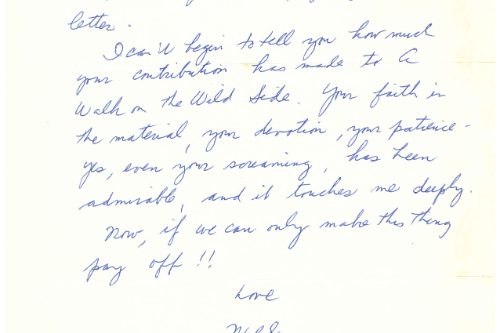 letter.
I can't begin to tell you how much
your contribution has made to A
Walk on the Wild Side. Your faith in
the material, your devotion, your patience -
yes, even your screaming, has been
admirable, and it touches me deeply.
Now, if we can only make this thing
pay off!!
Love